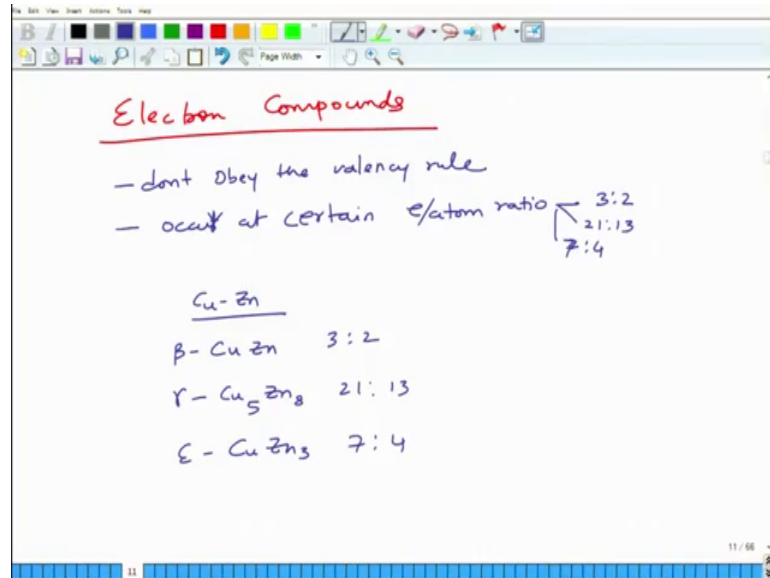 File Edit View Insert Actions Tools Help
B I
Page Width
Electron Compounds
— dont obey the valency rule
— occur at certain e/atom ratio 3:2
21:13
7:4
Cu-Zn
β- CuZn 3:2
γ- Cu5Zn8 21:13
ε - CuZn3 7:4
11 / 66
11